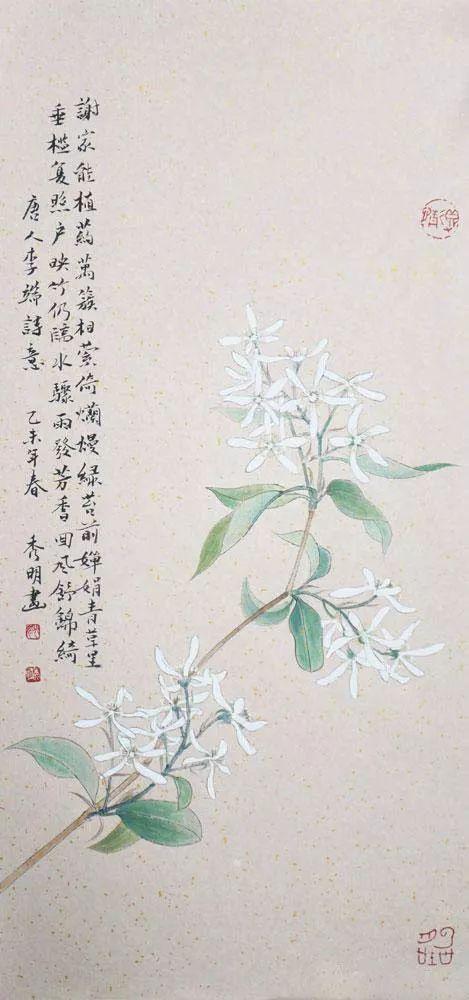 謝家能植葯萬簇相縈倚爛熳綠苔前嬋娟青草里
垂槛复照户映竹仍臨水驟雨發芳香回风舒錦綺
唐人李端詩意 乙未年春 秀明畫